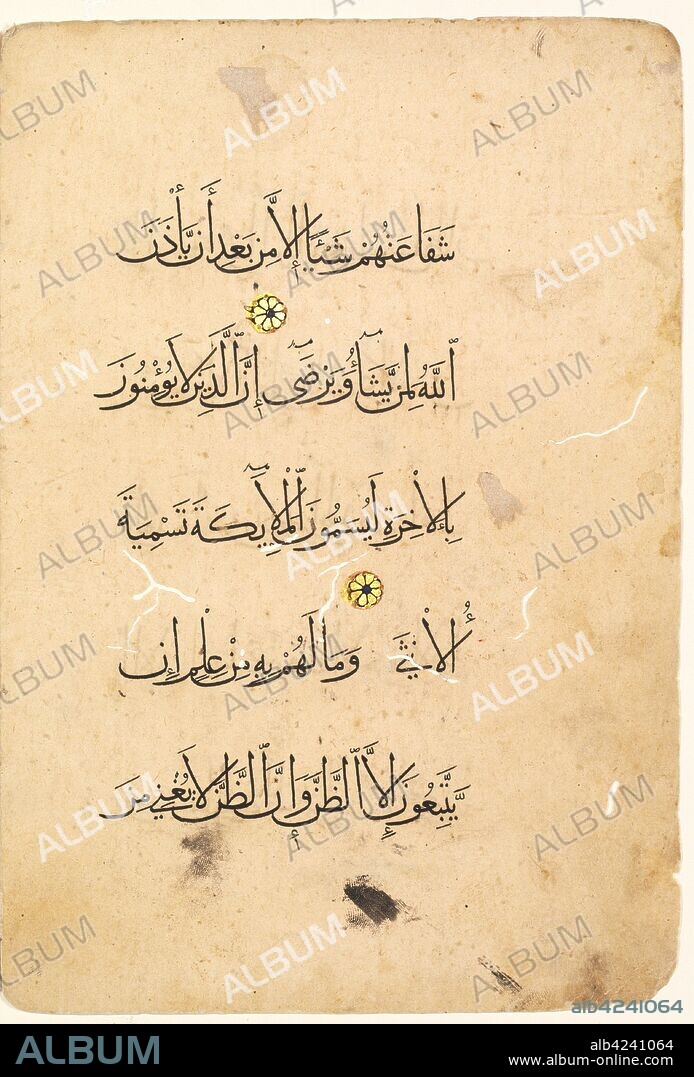 شَفَاعَتُهُمْ شَيْئًا إِلَّا مِنْ بَعْدِ أَنْ يَأْذَنَ
ٱللَّهُ لِمَنْ يَشَآءُ وَيَرْضَىٰ إِنَّ ٱلَّذِينَ لَا يُؤْمِنُونَ
بِالْأَخِرَةِ لَيُسَمُّونَ ٱلْمَلَآئِكَةَ تَسْمِيَةَ
ٱلْأُنْثَىٰ وَمَا لَهُمْ بِهِ مِنْ عِلْمٍ إِنْ
يَتَّبِعُونَ إِلَّا ٱلظَّنَّ وَإِنَّ ٱلظَّنَّ لَا يُغْنِي مِنَ
ALBUM
alb4241064
ALBUM
alb4241064
www.album-online.com